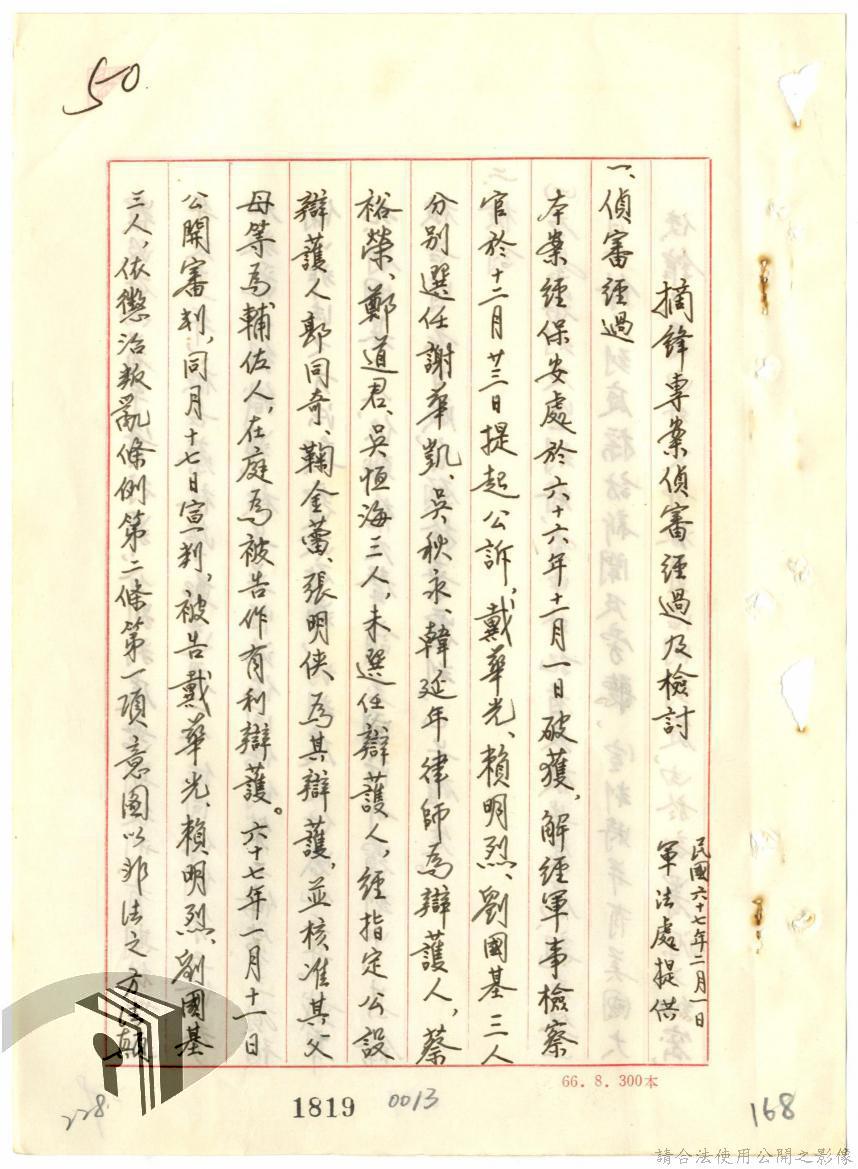 50
摘鋒專案偵審經過及檢討
民國六十七年二月一日
軍法處提供
一、偵審經過
本案經保安處於六十六年十一月一日破獲,解經軍事檢察
官於十二月廿三日提起公訴,戴華光、賴明烈、劉國基三人
分別選任謝華凱、吳秋永、韓延年律師為辯護人,蔡
裕榮、鄭道君、吳恒海三人,未選任辯護人,經指定公設
辯護人郭同奇、鞠金蕾、張明俠為其辯護,並核准其父
母等為輔佐人,在庭為被告作有利辯護。六十七年一月十一日
公開審判,同月十七日宣判,被告戴華光、賴明烈、劉國基
三人,依懲治叛亂條例第二條第一項意圖以非法之方法顛
66.8.300本
228
1819
0013
168
請合法使用公開之影像